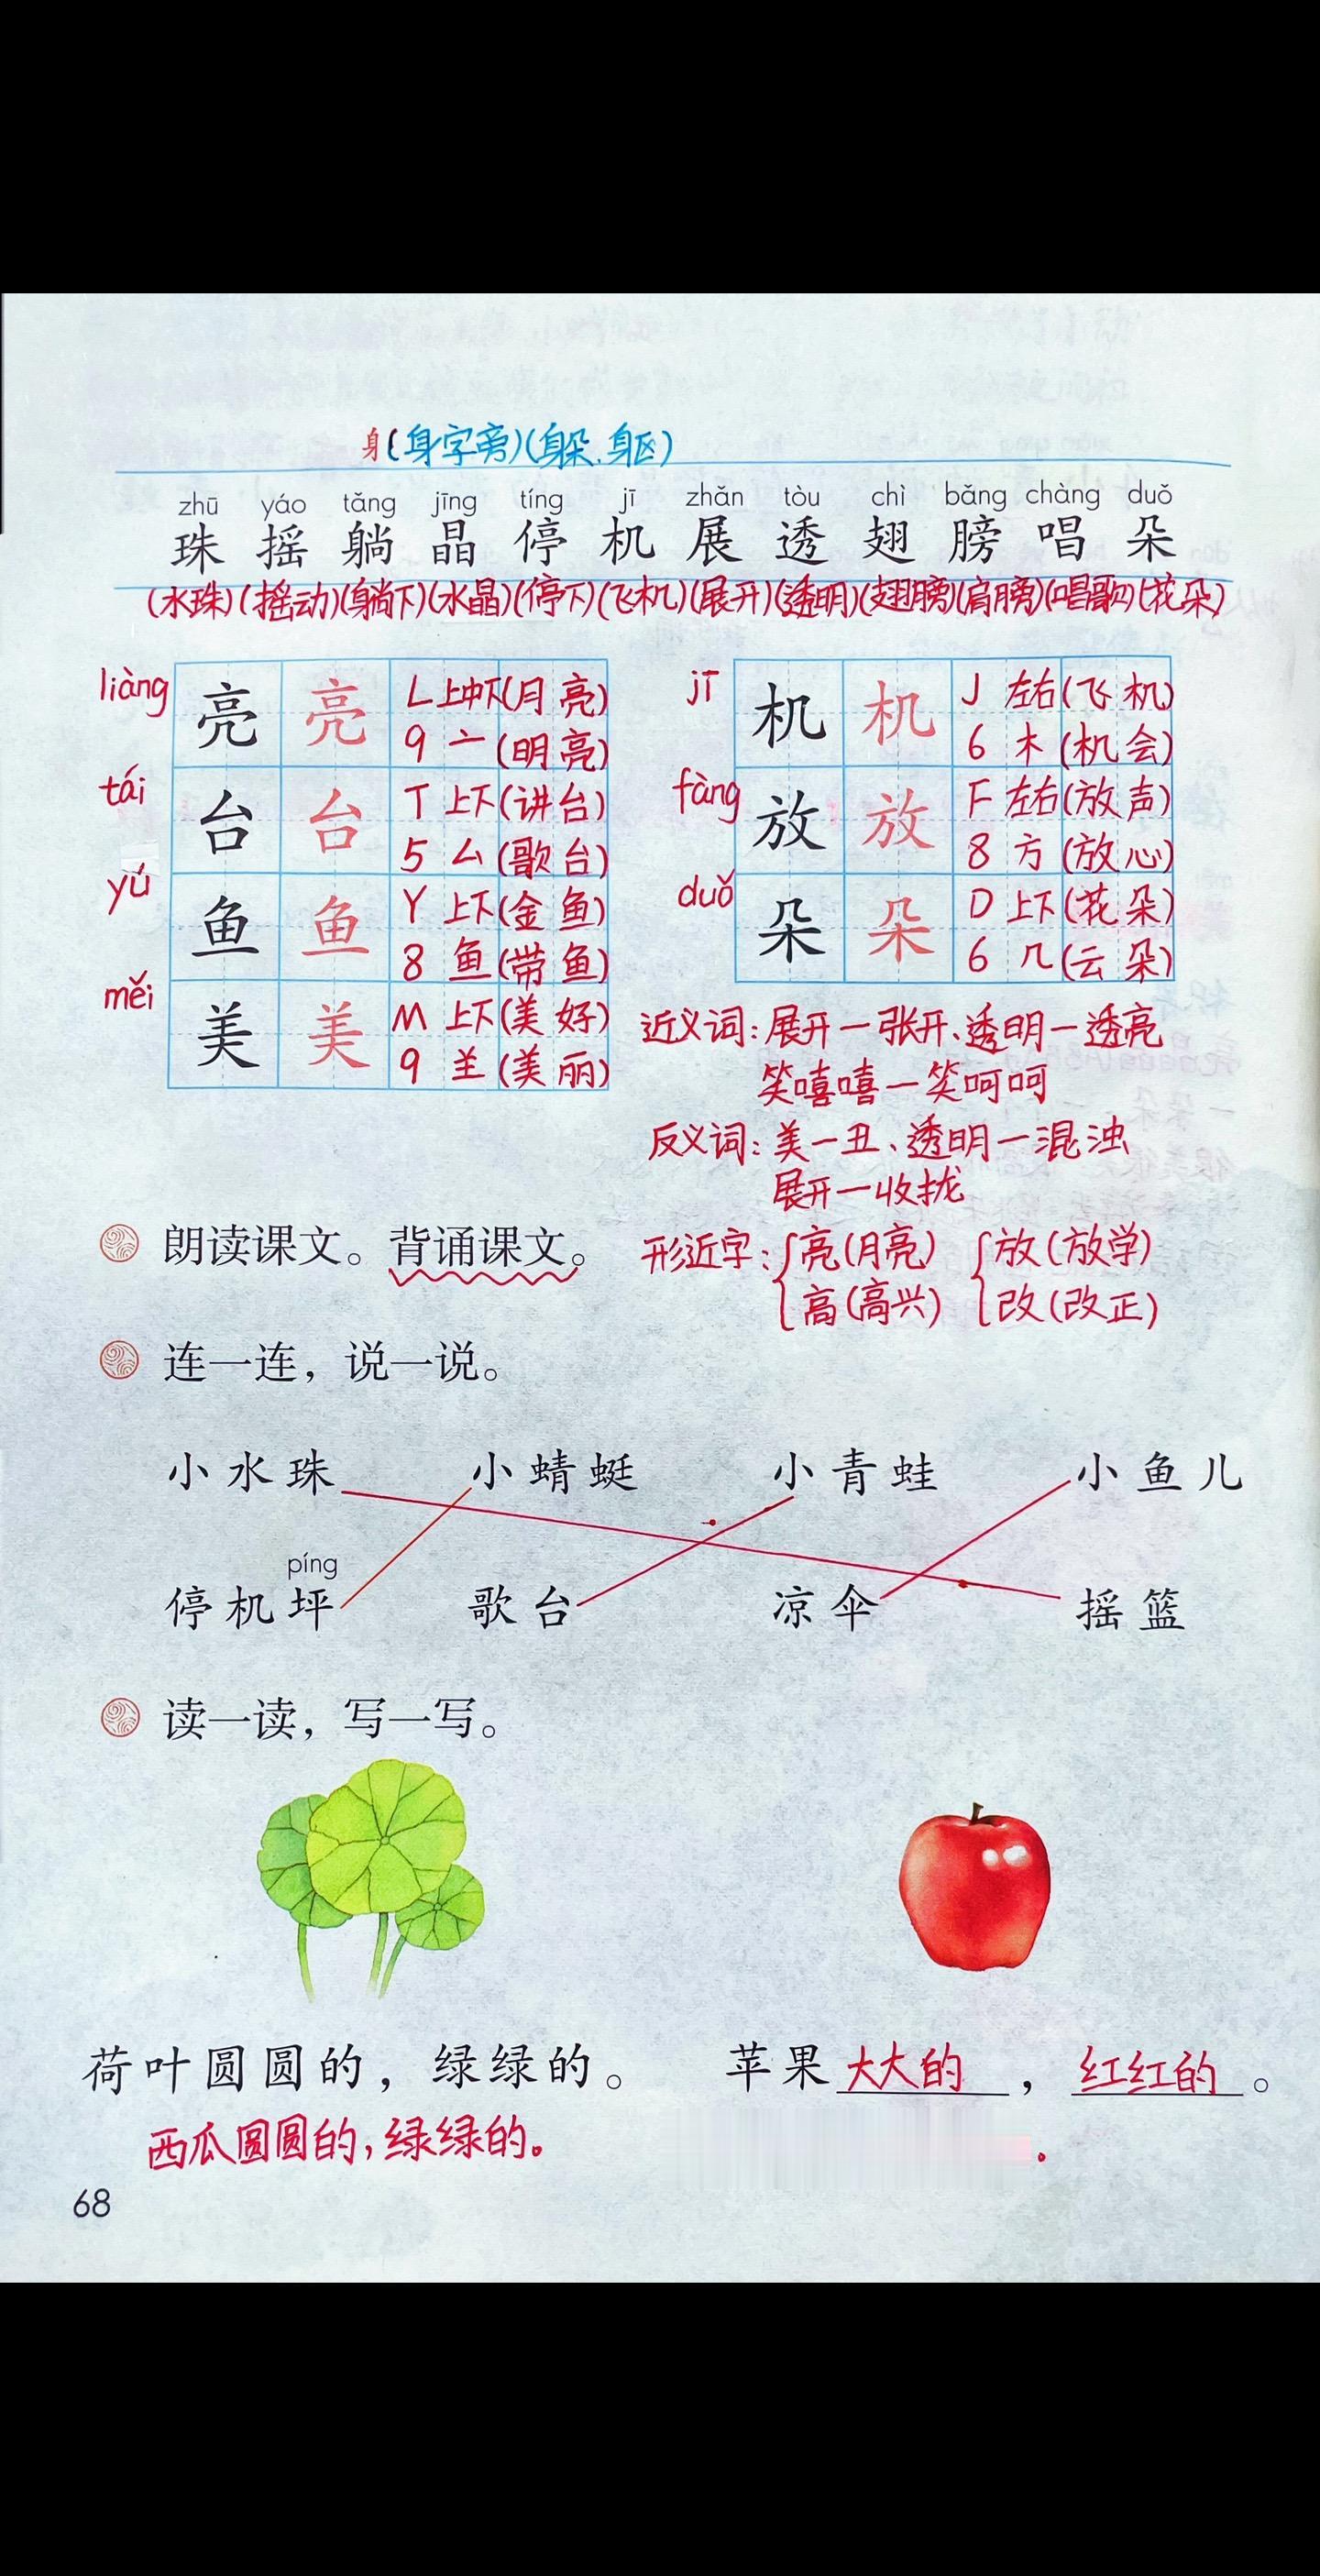 身(身字旁)(躲、躯)
zhū yáo tǎng jīng tíng jī zhǎn tòu chì bǎng chàng duǒ
珠 摇 躺 晶 停 机 展 透 翅 膀 唱 朵
(水珠)(摇动)(躺下)(水晶)(停下)(飞机)(展开)(透明)(翅膀)(肩膀)(唱歌)(花朵)
liàng 亮 亮 L 上中下(月亮)
9 亠 (明亮)
tái 台 台 T 上下(讲台)
5 厶 (歌台)
yú 鱼 鱼 Y 上下(金鱼)
8 鱼 (带鱼)
měi 美 美 M 上下(美好)
9 𦍌 (美丽)
jī 机 机 J 左右(飞机)
6 木 (机会)
fàng 放 放 F 左右(放声)
8 方 (放心)
duǒ 朵 朵 D 上下(花朵)
6 几 (云朵)
近义词:展开—张开、透明—透亮
笑嘻嘻—笑呵呵
反义词:美—丑、透明—混浊
展开—收拢
形近字:{亮(月亮) {放(放学)
高(高兴) 改(改正)
朗读课文。背诵课文。
连一连,说一说。
小水珠 小蜻蜓 小青蛙 小鱼儿
píng
停机坪 歌台 凉伞 摇篮
读一读,写一写。
荷叶圆圆的,绿绿的。 苹果大大的,红红的。
西瓜圆圆的,绿绿的。
68